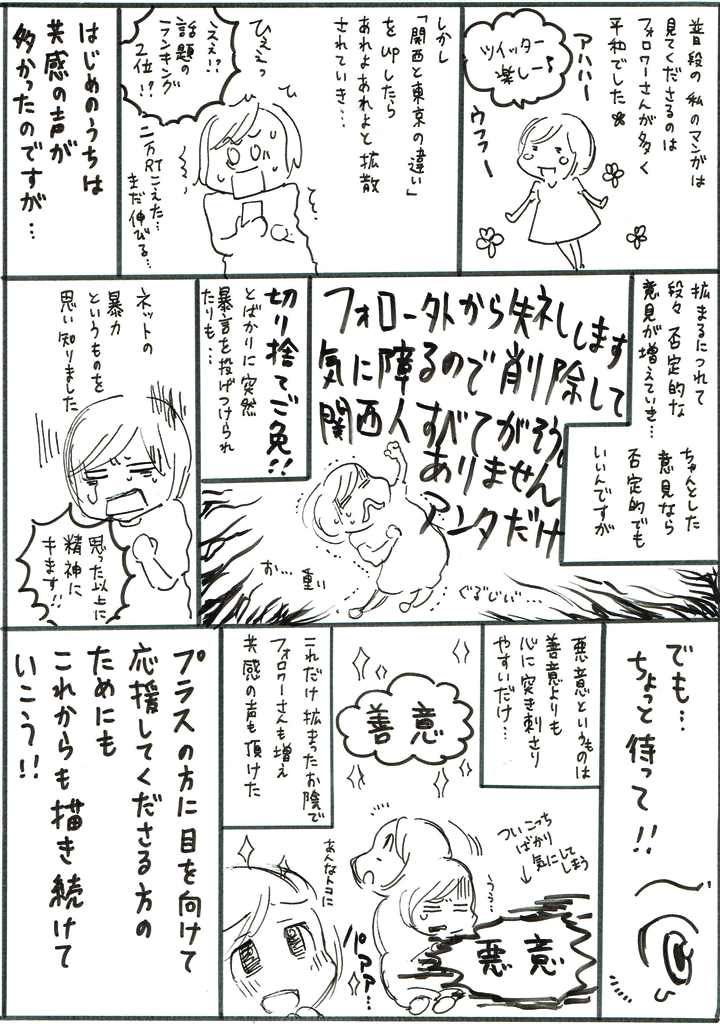 普段の私のマンガは
見てくださるのは
フォロワーさんが多く
平和でした
ツイッター
楽しー♪
アハハー
ウフフー
しかし
「関西と東京の違い」
をUPしたら
あれよあれよと拡散
されていき…
ひぇぇっ
ええ!?
話題の
ランキング
2位!?
二万RT
こえた…
まだ伸びる…
はじめのうちは
共感の声が
多かったのですが…
拡まるにつれて
段々否定的な
意見が増えていき…
ちゃんとした
意見なら
否定的でも
いいんですが
フォロー外から失礼します
気に障るので削除して
関西人すべてがそう
ありません
アンタだけ
お…重い
ぐるじい…
切り捨てご免!!
とばかりに突然
暴言を投げつけられ
たりも…
ネットの
暴力
というものを
思い知りました
思った以上に
精神に
キます!!
でも…
ちょっと待って!!
悪意というものは
善意よりも
心に突き刺さり
やすいだけ…
ついこっち
ばかり
気にして
しまう
うぅ…
悪意
善意
これだけ拡まったお陰で
フォロワーさんも増え
共感の声も頂けた
あんなトコに
パアァ…
プラスの方に目を向けて
応援してくださる方の
ためにも
これからも描き続けて
いこう!!